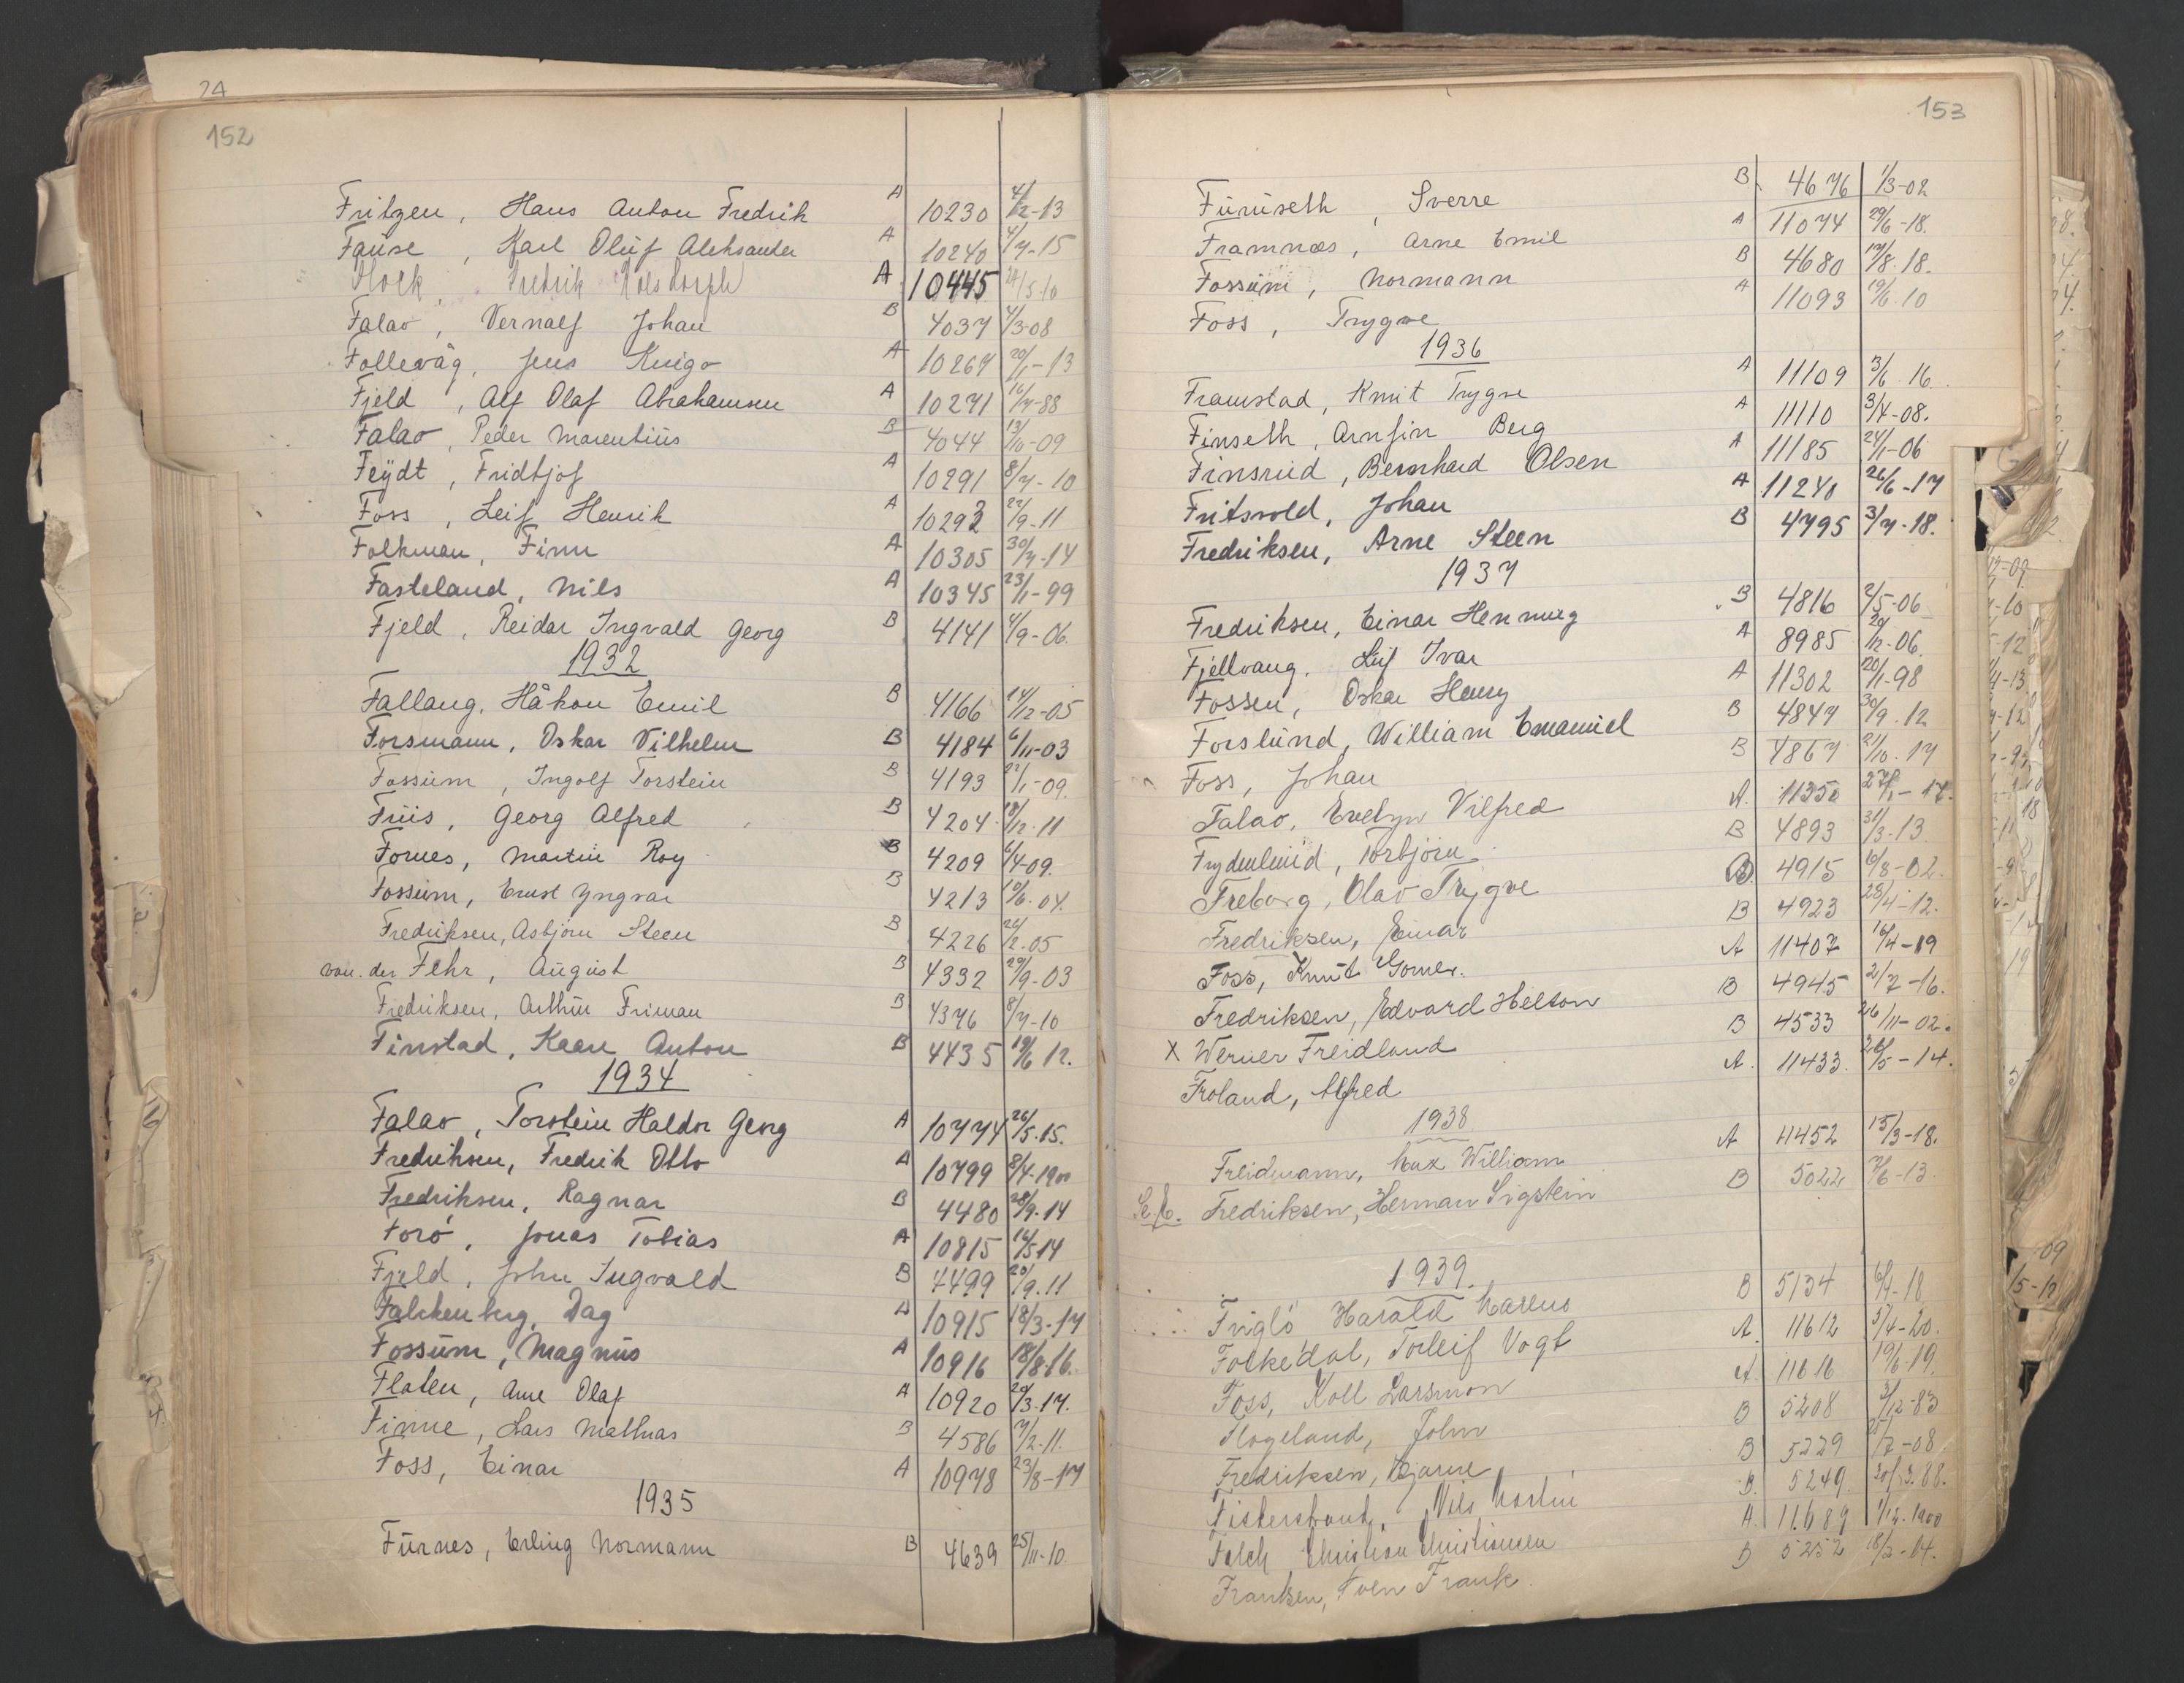 24
152
Fritzen, Hans Anton Fredrik A 10230 4/12-13
Fause, Karl Oluf Aleksander A 10240 4/7-15
Flock, Fredrik A 10445 24/5 10
Falao, Vernalf Johan B 4037 4/3-08
Follevåg, Jens Kuigo A 10267 20/1-13
Fjeld, Alf Olaf Abrahamsen A 10271 16/7-88
Falao, Peder Marentius B 4044 13/10-09
Feydt, Fridtjof A 10291 8/7-10
Foss, Leif Henrik A 10292 22/9-11
Folkman, Finn A 10305 30/7-14
Fasteland, Nils A 10345 23/1-99
Fjeld, Reidar Ingvald Georg B 4141 4/9-06.
1932
Fallang, Håkon Emil B 4166 14/12-05
Forsmann, Oskar Vilhelm B 4184 6/11-03
Fossum, Ingolf Torstein B 4193 22/1-09.
Friis, Georg Alfred B 4204 18/12-11
Fornes, Martin Roy B 4209 6/4-09.
Fossum, Ernst Yngvar B 4213 10/6-04.
Fredriksen, Asbjörn Steen B 4226 26/2-05
von der Fehr, August B 4332 29/9-03
Fredriksen, Arthur Friman B 4376 8/7-10
Finstad, Kaare Anton B 4435 19/6 12.
1934
Falao, Torstein Haldor Georg A 10774 26/5-15.
Fredriksen, Fredrik Otto A 10799 8/4-1900
Fredriksen, Ragnar B 4480 28/9-14
Forö, Jonas Tobias A 10815 16/5 14
Fjeld, John Ingvald B 4499 20/9.11
Falckenberg, Dag A 10915 18/3-17
Fossum, Magnus A 10916 18/8-16.
Flaten, Arne Olaf A 10920 29/3-17.
Finne, Lars Mathias B 4586 7/2-11.
Foss, Einar A 10978 23/8-17
1935
Furnes, Erling Normann B 4639 25/11-10.
153
Furuseth, Sverre B 4676 1/3-02
Framnæs, Arne Emil A 11074 29/6-18.
Fossum, Normann B 4680 17/8-18.
Foss, Trygve A 11093 19/6-10
1936
Framstad, Knut Trygve A 11109 3/6-16.
Finseth, Arnfin Berg A 11110 3/4-08.
Finsrud, Bernhard Olsen A 11185 24/1-06
Fritsvold, Johan A 11240 26/6-17
Fredriksen, Arne Steen B 4795 3/7-18.
1937
Fredriksen, Einar Henning B 4816 2/5-06
Fjellvang, Leif Ivar A 8985 29/12-06.
Fossen, Oskar Henry A 11302 20/1-98
Forslund, William Emanuel B 4847 30/9-12
Foss, Johan B 4867 21/10-17
Falao, Evelyn Vilfred A. 11350 27/1-17.
Frydenlund, Torbjörn B 4893 31/3-13
Freborg, Olav Trygve B. 4915 6/8-02.
Fredriksen, Einar B 4923 28/4-12.
Foss, Knut Gomer. A 11407 16/4-19
Fredriksen, Edvard Helton B 4945 2/7-16.
X Werner Freidland B 4533 26/11-02.
Froland, Alfred A. 11433 28/5-14.
1938
Freidmann, Max William A 11452 15/3-18.
Fredriksen, Herman Sigstein B 5022 7/6-13
1939.
Friglö Harald Marius B 5134 6/9-18
Folkedal, Torleif Vogt A. 11612 5/4-20.
Foss, Koll Larsmon A. 11616 19/6-19.
Flogeland, John B 5208 3/12-83
Fredriksen, Bjarne B 5229 25/7-08
Fiskerstrand, Nils Martin B. 5249 30/3.88.
Falch Christian Christiansen A. 11689 1/12-1900
Frantzen, Sven Frank B 5252 18/2-04.